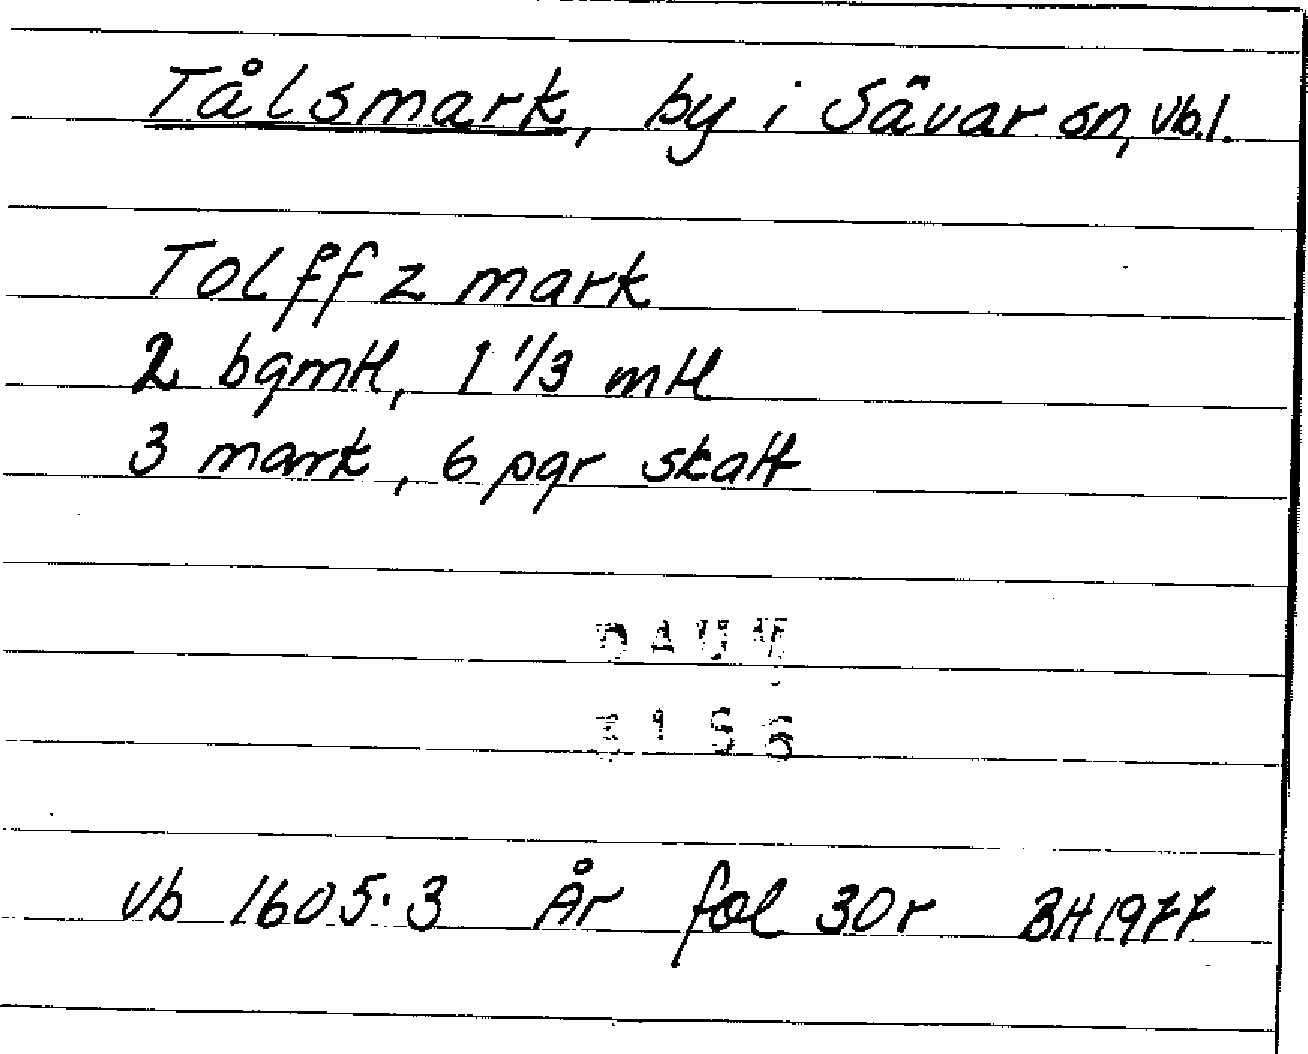 Tålsmark, by i Sävar sn, Vb.l.
Tolffz mark
2 bgmtl, 1 1/3 mtl
3 mark, 6 pgr skatt
DAUM
Vb 1605:3 År fol 30r BH 1977